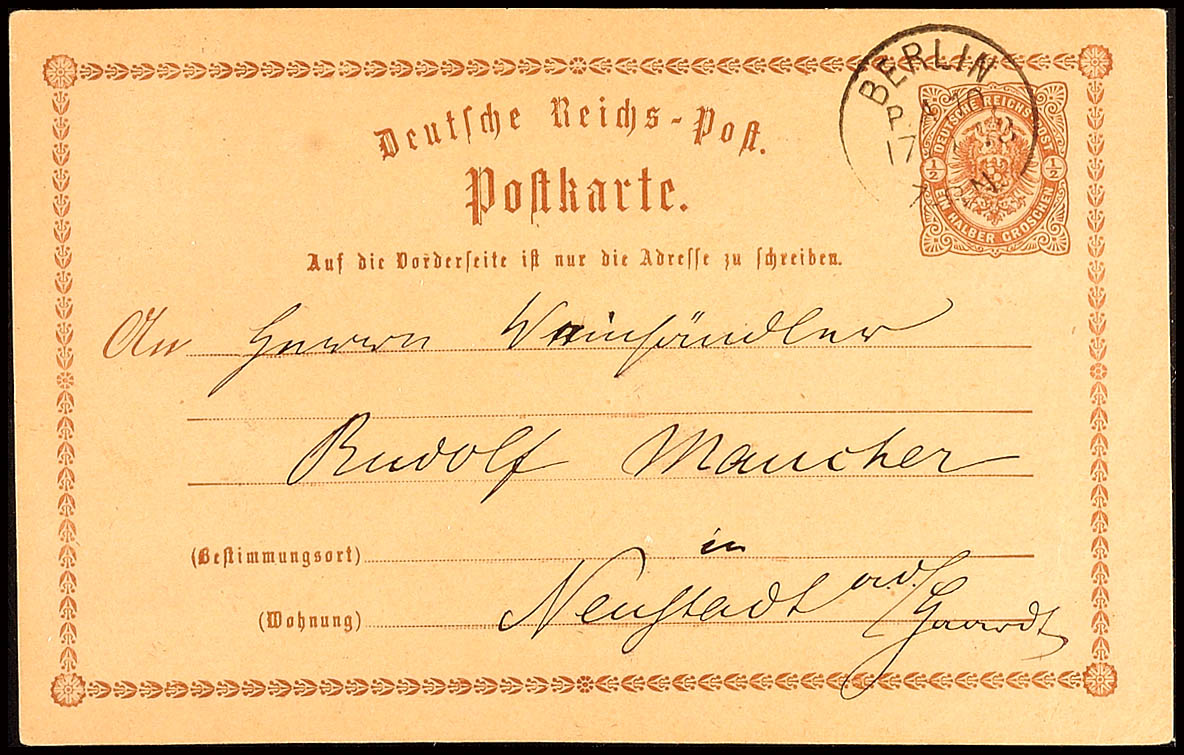 Deutsche Reichs-Post.
Postkarte.
Auf die Vorderseite ist nur die Adresse zu schreiben.
BERLIN
P. A. 10
17
DEUTSCHE REICHS-POST
1/2 1/2
EIN HALBER GROSCHEN
An Herrn Weinhändler
Rudolf Maucher
(Bestimmungsort) in
(Wohnung) Neustadt a.d./Haardt